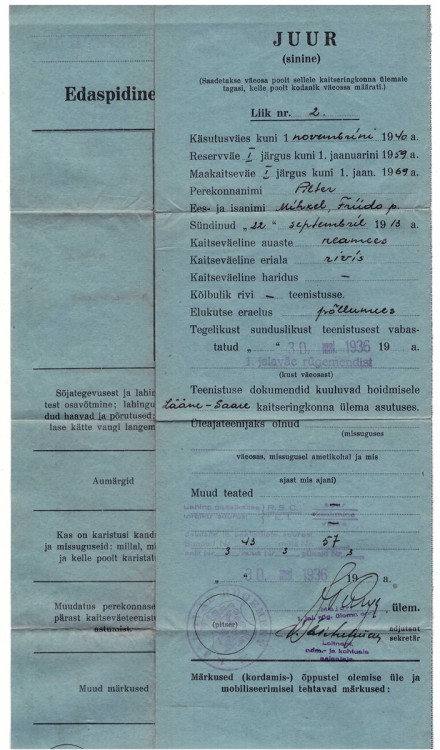 JUUR
(sinine)
(Saadetakse väeosa poolt sellele kaitseringkonna ülemale
tagasi, kelle poolt kodanik väeossa määrati.)
Liik nr. 2.
Käsutusväes kuni 1 novembrini 1940 a.
Reservväe I järgus kuni 1. jaanuarini 1959 a.
Maakaitseväe I järgus kuni 1. jaan. 1969 a.
Perekonnanimi
Ees- ja isanimi Mihkel, Friido p.
Sündinud „22“ septembril 1913 a.
Kaitseväeline auaste reamees
Kaitseväeline eriala rivis
Kaitseväeline haridus –
Kõlbulik rivi – teenistusse.
Elukutse eraelus põllumees
Tegelikust sunduslikust teenistusest vabas-
tatud „ “ 30 1936 19 a.
1. jalaväe rügemendist
(kust väeosast)
Teenistuse dokumendid kuuluvad hoidmisele
Lääne-Saare kaitseringkonna ülema asutuses.
Üleajateenijaks olnud
(missuguses
väeosas, missugusel ametikohal ja mis
ajast mis ajani)
Muud teated
–
–
43 57
3 3 3
„ “ 30 1936 19 a.
ülem.
(pitser)
adjutant
sekretär
Märkused (kordamis-) õppustel olemise üle ja
mobiliseerimisel tehtavad märkused:
Edaspidine
Sõjategevusest ja lahing
test osavõtmine; lahingu
dud haavad ja põrutused;
lase kätte vangi langem
Aumärgid
Kas on karistusi kand
ja missuguseid: millal, mi
ja kelle poolt karistat
Muudatus perekonnase
pärast kaitseväeteenist
astumist.
Muud märkused